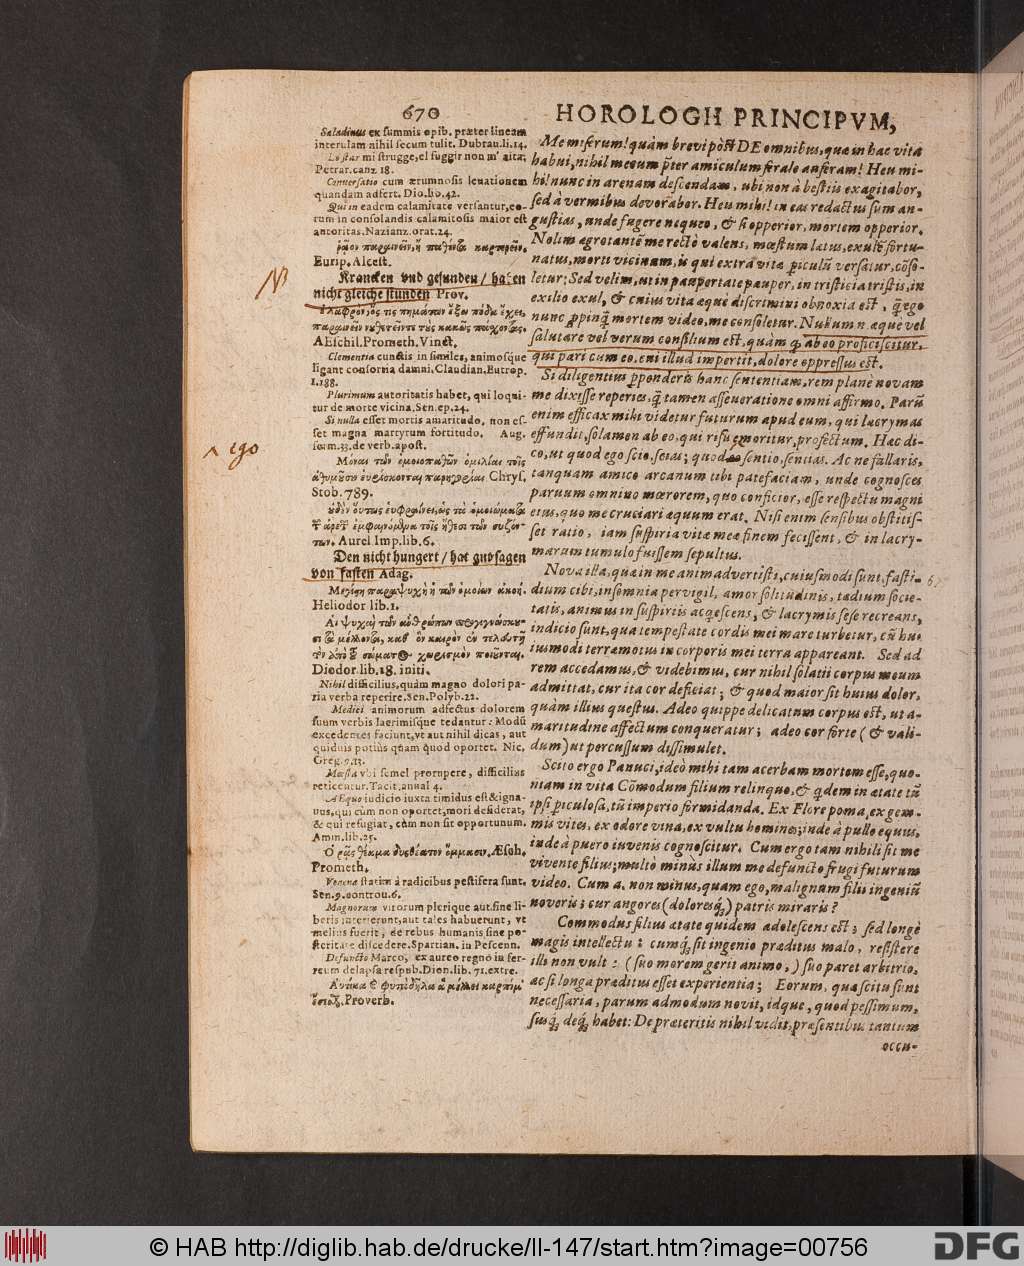 670
HOROLOGII PRINCIPVM,
Saladinus ex summis opib. præter lineam
interulam nihil secum tulit. Dubrau.li.14.
Lostar mi strugge, el fuggir non m' aita;
Petrar.canz 18.
Conversatio cum ærumnosis leuationem
quandam adfert. Dio.lib.42.
Qui in eadem calamitate versantur, eo-
rum in consolandis calamitosis maior est
autoritas. Nazianz.orat.24.
ῥᾷον παραινεῖν, ἢ παθόντα καρτερεῖν.
Eurip. Alcest.
Krancken vnd gesunden / haben
nicht gleiche stunden Prov.
ἐλαφρὸν, ὅς τις πημάτων ἔξω πόδα ἔχει,
παραινεῖν νουθετεῖν τε τὺς κακῶς πάσχοντας.
AEschil.Prometh.Vinct.
Clementia cunctis in similes, animosque
ligant consortia damni. Claudian. Eutrop.
l.188.
Plurimum autoritatis habet, qui loqui-
tur de morte vicina. Sen. ep.24.
Si nulla esset mortis amaritudo, non es-
set magna martyrum fortitudo. Aug.
serm.33.de verb.apost.
Μόναι τῶν ὁμοιοπαθῶν ὁμιλίαι τοῖς
ἀθυμοῦσιν εὑρίσκονται παρηγορίαι Chrys.
Stob. 789.
οὐδὲν οὕτως εὐφραίνει, ὡς τὰ ὁμοιώματα
τ ἀρετ ἐμφαινόμενα τοῖς ἤθεσι τῶν συζών-
των. Aurel. Imp.lib.6.
Den nicht hungert / hat gut sagen
von fasten Adag.
Μεγίστη παραψυχὴ ἡ τῶν ὁμοίων ἀκοή.
Heliodor lib.1.
Αἱ ψυχαὶ τῶν ἀνθρώπων προγιγνώσκου-
σι τὰ μέλλοντα, καθ' ὃν καιρὸν ἐν τελευτῇ
τὸν ἀπὸ τ σώματος χωρισμὸν ποιοῦνται.
Diodor.lib.18. initi.
Nihil difficilius, quàm magno dolori pa-
ria verba reperire. Sen.Polyb.22.
Medici animorum adfectus dolorem
suum verbis lacrimisque tedantur: Modũ
excedentes faciunt, vt aut nihil dicas, aut
quiduis potiùs quam quod oportet. Nic,
Greg.9.13.
Mœsta vbi semel prorupere, difficilius
reticentur. Tacit. annal 4.
AEquo iudicio iuxta timidus est & igna-
vus, qui cùm non oportet, mori desiderat,
& qui refugiat, cùm non sit opportunum.
Amm.lib.25.
Ὁ ρᾷς θέαμα δυσθέατον ὄμμασιν. Æsch.
Prometh.
Venena statim à radicibus pestifera sunt.
Sen.9.controu.6.
Magnorum virorum plerique aut sine li-
beris interierunt, aut tales habuerunt, vt
melius fuerit, de rebus humanis sine po-
steritate discedere. Spartian. in Pescenn.
Defuncto Marco, ex aureo regno in fer-
reum delapsa respub. Dion.lib. 71. extre.
Αὐτίκα καρπίμ'
Proverb.
Me miserum! quàm brevi pòst DE omnibus, quæ in hac vita
habui, nihil mecum p̃ter amiculum ferale auferam! Heu mi-
hi! nunc in arenam descendam, ubi non à bestiis exagitabor,
sed à vermibus devorabor. Heu mihi! in eas redactus sum an-
gustias, unde fugere nequeo, & si opperior, mortem opperior.
Nolim ægrotantẽ me rectò valens, mœstum lætus, exulẽ fortu-
natus, morti vicinum, is qui extra vitæ piculũ versatur, cõso-
letur: Sed velim, ut in paupertate pauper, in tristicia tristis, in
exilio exul, & cuius vita æquè discrimini obnoxia est, q̃ ego
nunc ppinq̃ mortem video, me consoletur. Nullum n. æque vel
salutare vel verum consilium est, quàm q̃ ab eo proficiscitur,
qui pari cum eo, cui illud impertit, dolore oppressus est.
Si diligentius p̃ponderis hanc sententiam, rem planè novam
me dixisse reperies, q̃ tamen asseveratione omni affirmo. Parũ
enim efficax mihi videtur futurum apud eum, qui lacrymas
effundit, solamen ab eo, qui risu emoritur, profectum. Hæc di-
co, ut quod ego scio, scias; quod sentio, sentias. Ac ne fallaris,
tanquam amico arcanum tibi patefaciam, unde cognosces
parvum omnino mœrorem, quo conficior, esse respectu magni
eius, quo me cruciari æquum erat. Nisi enim sensibus obstitis-
set ratio, iam suspiria vitæ meæ finem fecissent, & in lacry-
marum tumulo fuissem sepultus.
Nova illa, quæ in me animadvertisti, cuiusmodi sunt, fasti-
dium cibi, insomnia pervigil, amor solitudinis, tædium socie-
tatis, animus in suspiriis acq̃escens, & lacrymis sese recreans,
indicio sunt, qua tempestate cordis mei mare turbetur, cũ hu-
iusmodi terræmotus in corporis mei terra appareant. Sed ad
rem accedamus, & videbimus, cur nihil solatii corpus meum
admittat, cur ita cor deficiat; & quod maior sit huius dolor,
quàm illius questus. Adeo quippe delicatum corpus est, ut a-
maritudine affectum conqueratur; adeo cor forte (& vali-
dum) ut percussum dissimulet.
Scito ergo Panuci, ideò mihi tam acerbam mortem esse, quo-
niam in vita Cõmodum filium relinquo, & q̃dem in ætate tũ
ipsi piculosâ, tũ imperio formidanda. Ex Flore poma, ex gem-
mis vites, ex odore vina, ex vultu homines; inde à pullo equus,
inde à puero iuvenis cognoscitur. Cum ergo tam nihili sit me
vivente filius; multò minùs illum me defuncto frugi futurum
video. Cum a. non minus, quam ego, malignum filii ingeniũ
noveris; cur angores (doloresq́;) patris miraris?
Commodus filius ætate quidem adolescens est; sed longè
magis intellectu: cumq́; sit ingenio præditus malo, resistere
illi non vult: (suo morem gerit animo,) suo paret arbitrio,
ac si longa præditus esset experientia; Eorum, quæ scitu sunt
necessaria, parum admodum novit, idque, quod pessimum,
susq́; deq́; habet: De præteritis nihil vidit, præsentibus tantum
occu-
NB
^ ego
© HAB http://diglib.hab.de/drucke/li-147/start.htm?image=00756
DFG